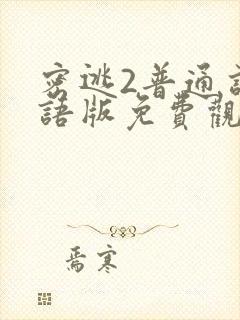 密逃2普通話
語版免費觀
焉寒